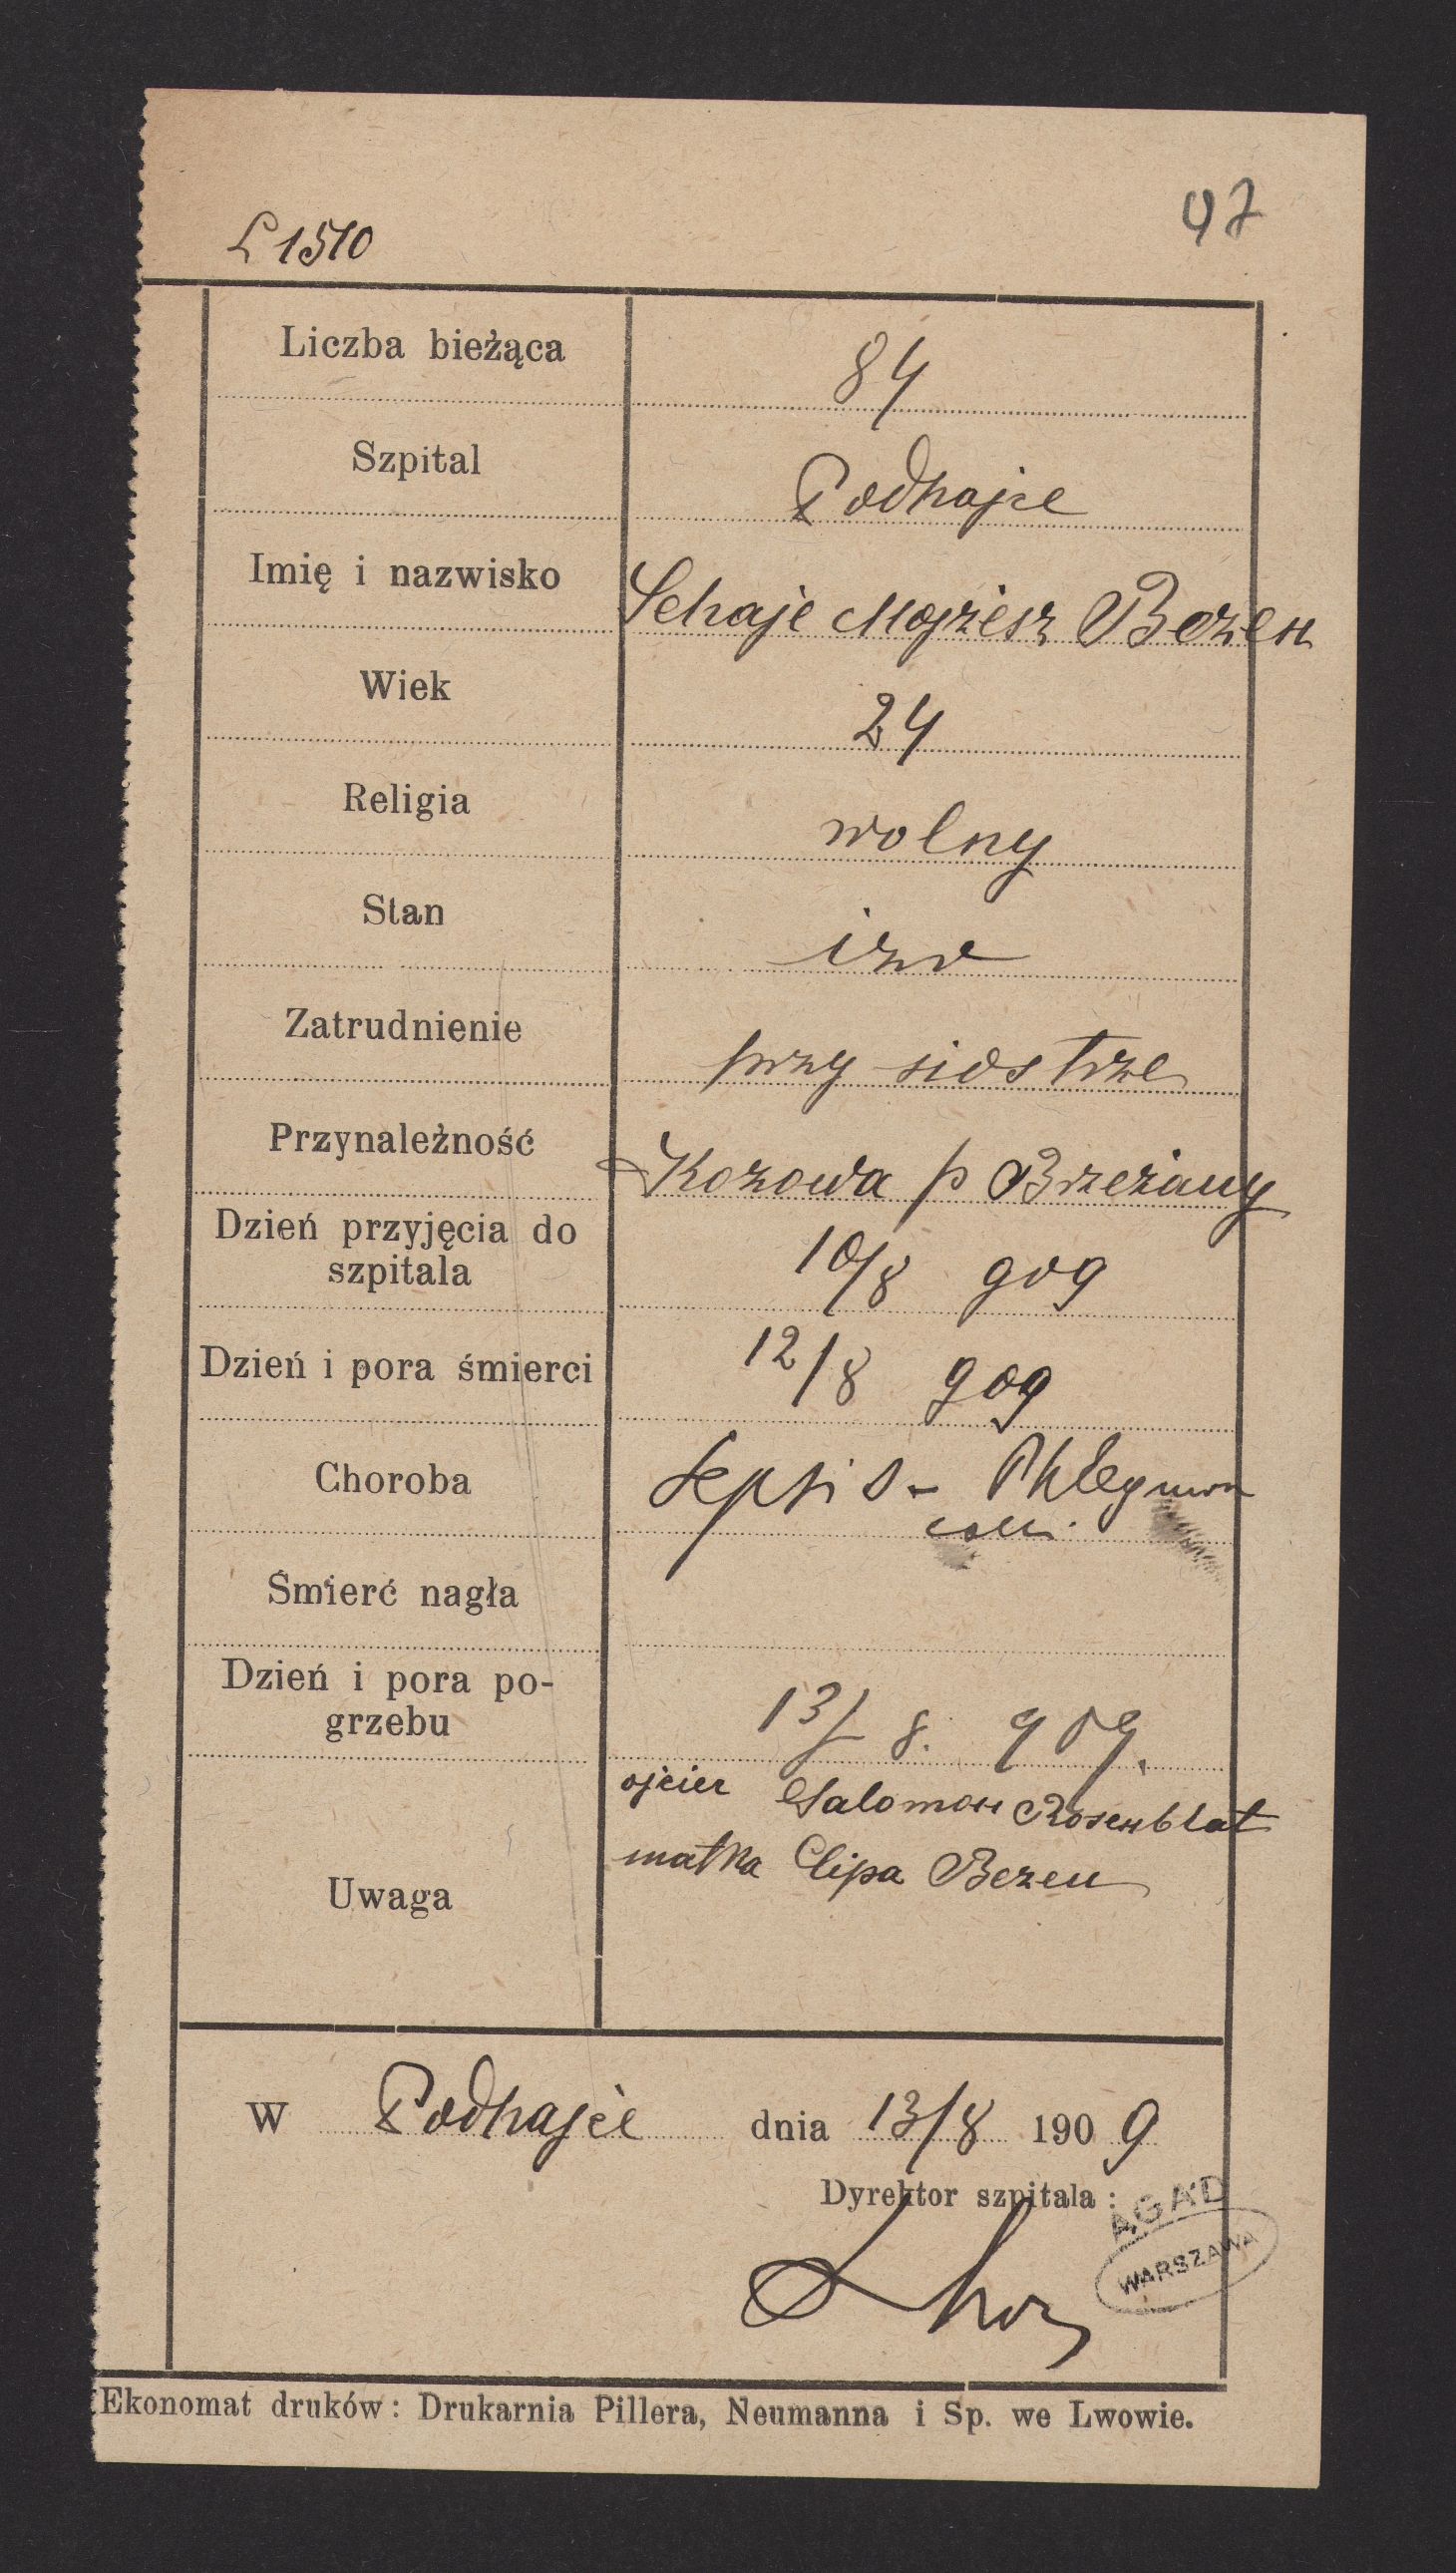 97
L 1510
Liczba bieżąca 84
Szpital Podhajce
Imię i nazwisko Schaje Mojżesz Bezen
Wiek 24
Religia wolny
Stan izr
Zatrudnienie przy siostrze
Przynależność Kozowa p Brzeżany
Dzień przyjęcia do
szpitala 10/8 909
Dzień i pora śmierci 12/8 909
Choroba Sepsis - Phlegmona
colli.
Śmierć nagła
Dzień i pora po-
grzebu 13/ 8. 909.
ojciec Salomon Rosenblat
matka Cipa Bezen
Uwaga
W Podhajce dnia 13/8 190 9
Dyrektor szpitala :
AGAD
WARSZAWA
Ekonomat druków: Drukarnia Pillera, Neumanna i Sp. we Lwowie.